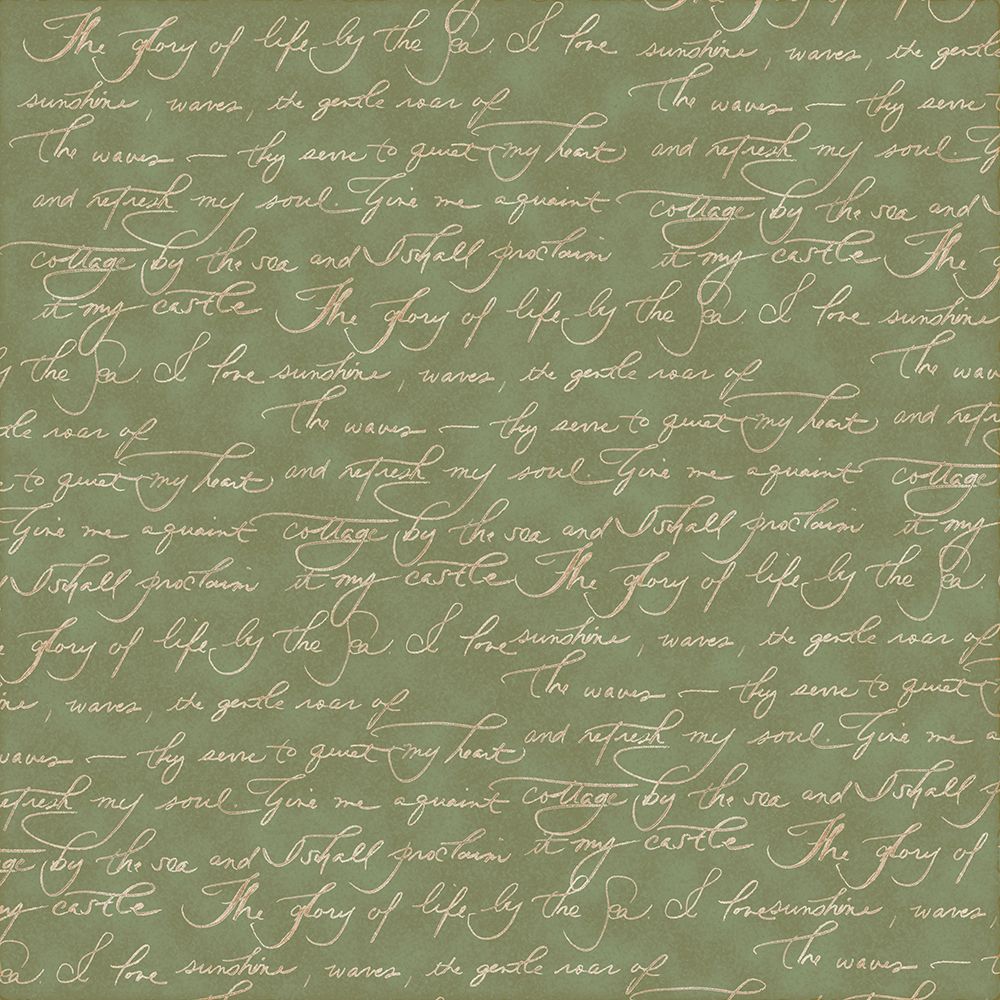 The glory of life by the Sea. I love sunshine, waves, the gentle
sunshine, waves, the gentle roar of The waves — they serve t
The waves — they serve to quiet my heart and refresh my soul. G
and refresh my soul. Give me a quaint cottage by the sea and
cottage by the sea and I shall proclaim it my castle The g
it my castle The glory of life by the Sea. I love sunshine
the Sea. I love sunshine, waves, the gentle roar of The wav
tle roar of The waves — they serve to quiet my heart and refre
to quiet my heart and refresh my soul. Give me a quaint cottage
Give me a quaint cottage by the sea and I shall proclaim it my
I shall proclaim it my castle The glory of life by the Sea
e glory of life by the Sea. I love sunshine, waves, the gentle roar of
ne, waves, the gentle roar of The waves — they serve to quiet
waves — they serve to quiet my heart and refresh my soul. Give me a
efresh my soul. Give me a quaint cottage by the sea and I shall p
ge by the sea and I shall proclaim it my castle The glory of
my castle The glory of life by the Sea. I love sunshine, waves
Sea. I love sunshine, waves, the gentle roar of The waves —